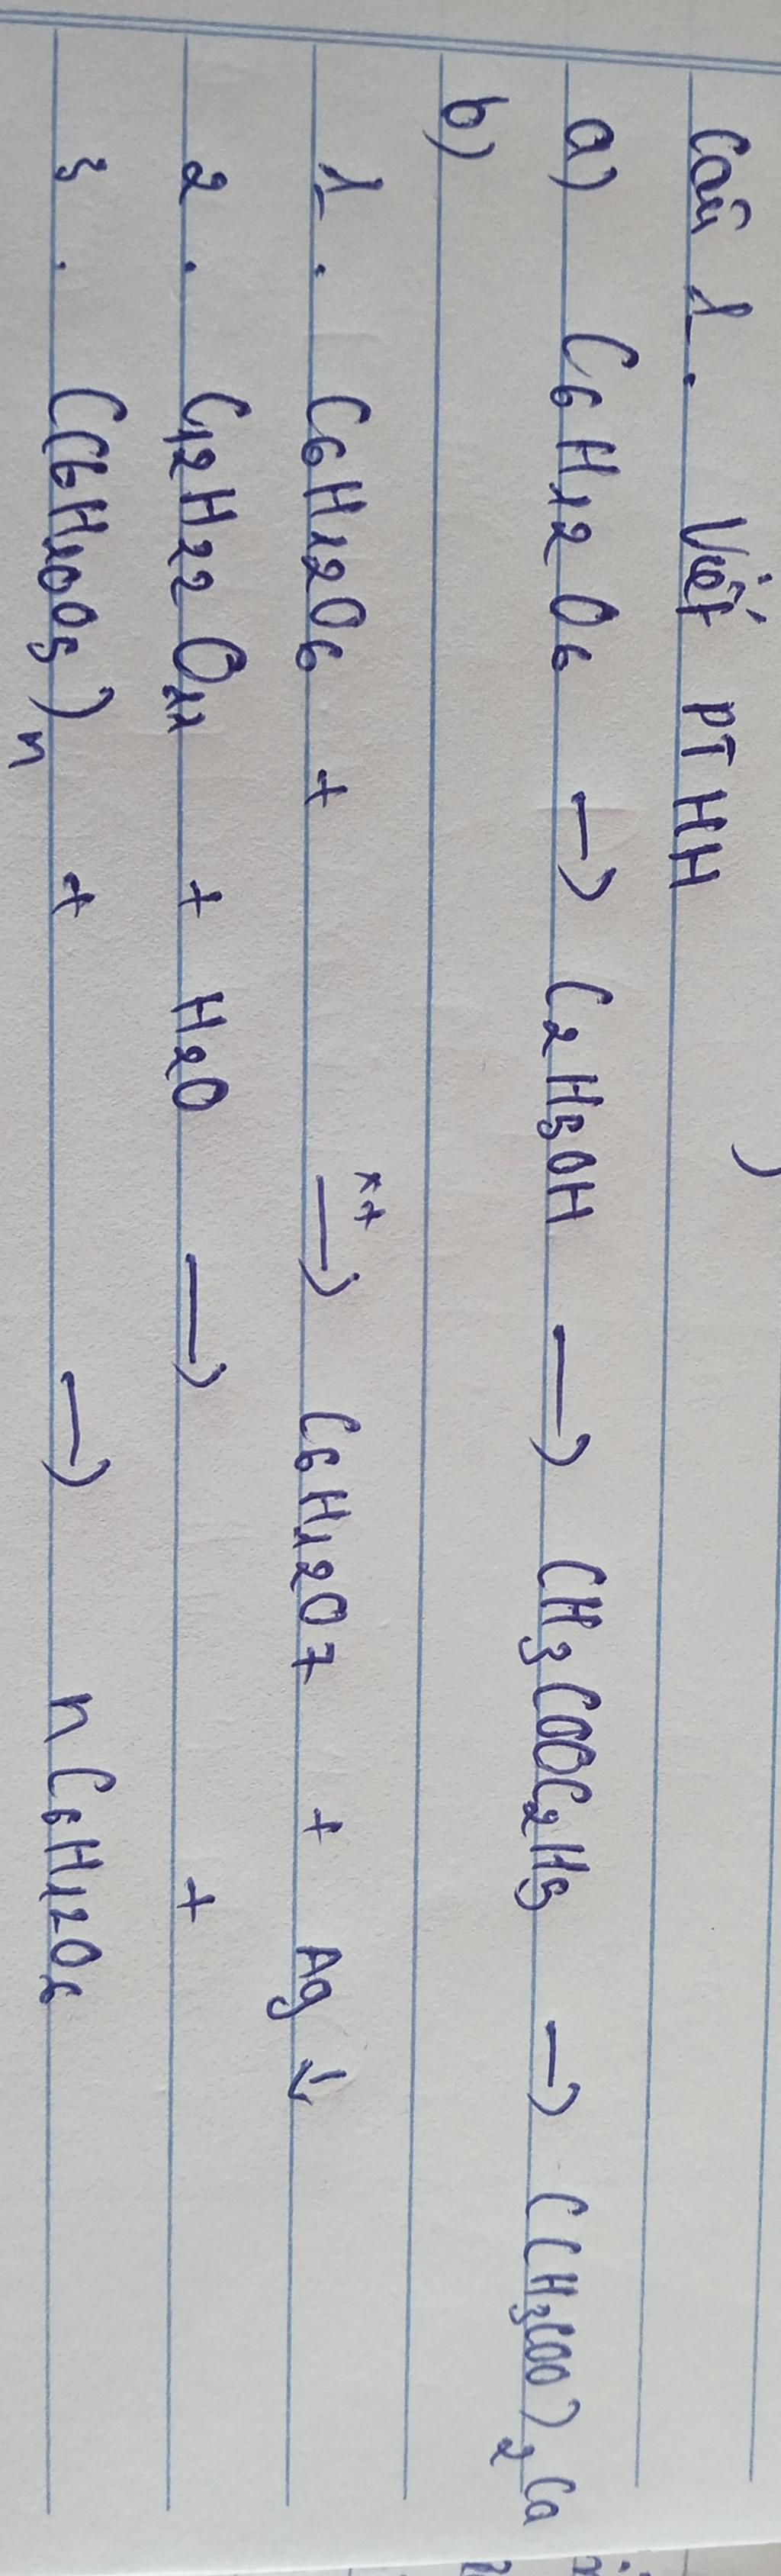 Câu 1. Viết PTHH
a) C6H12O6 → C2H5OH → CH3COOC2H5 → (CH3COO)2Ca
b)
1. C6H12O6 + → C6H12O7 + Ag ↓
2. C12H22O11 + H2O → +
3. (C6H10O5)n + → nC6H12O6